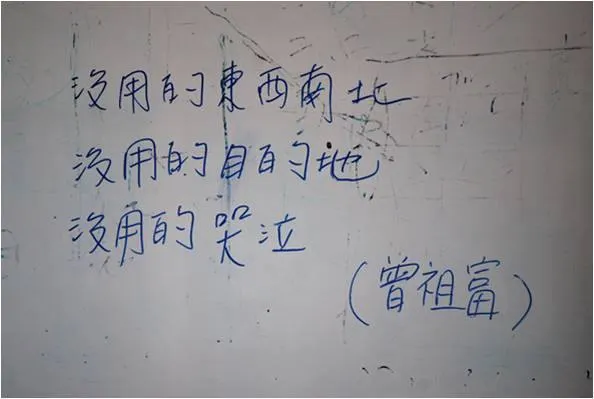 沒用的東西南北
沒用的目的地
沒用的哭泣
(曾祖富)